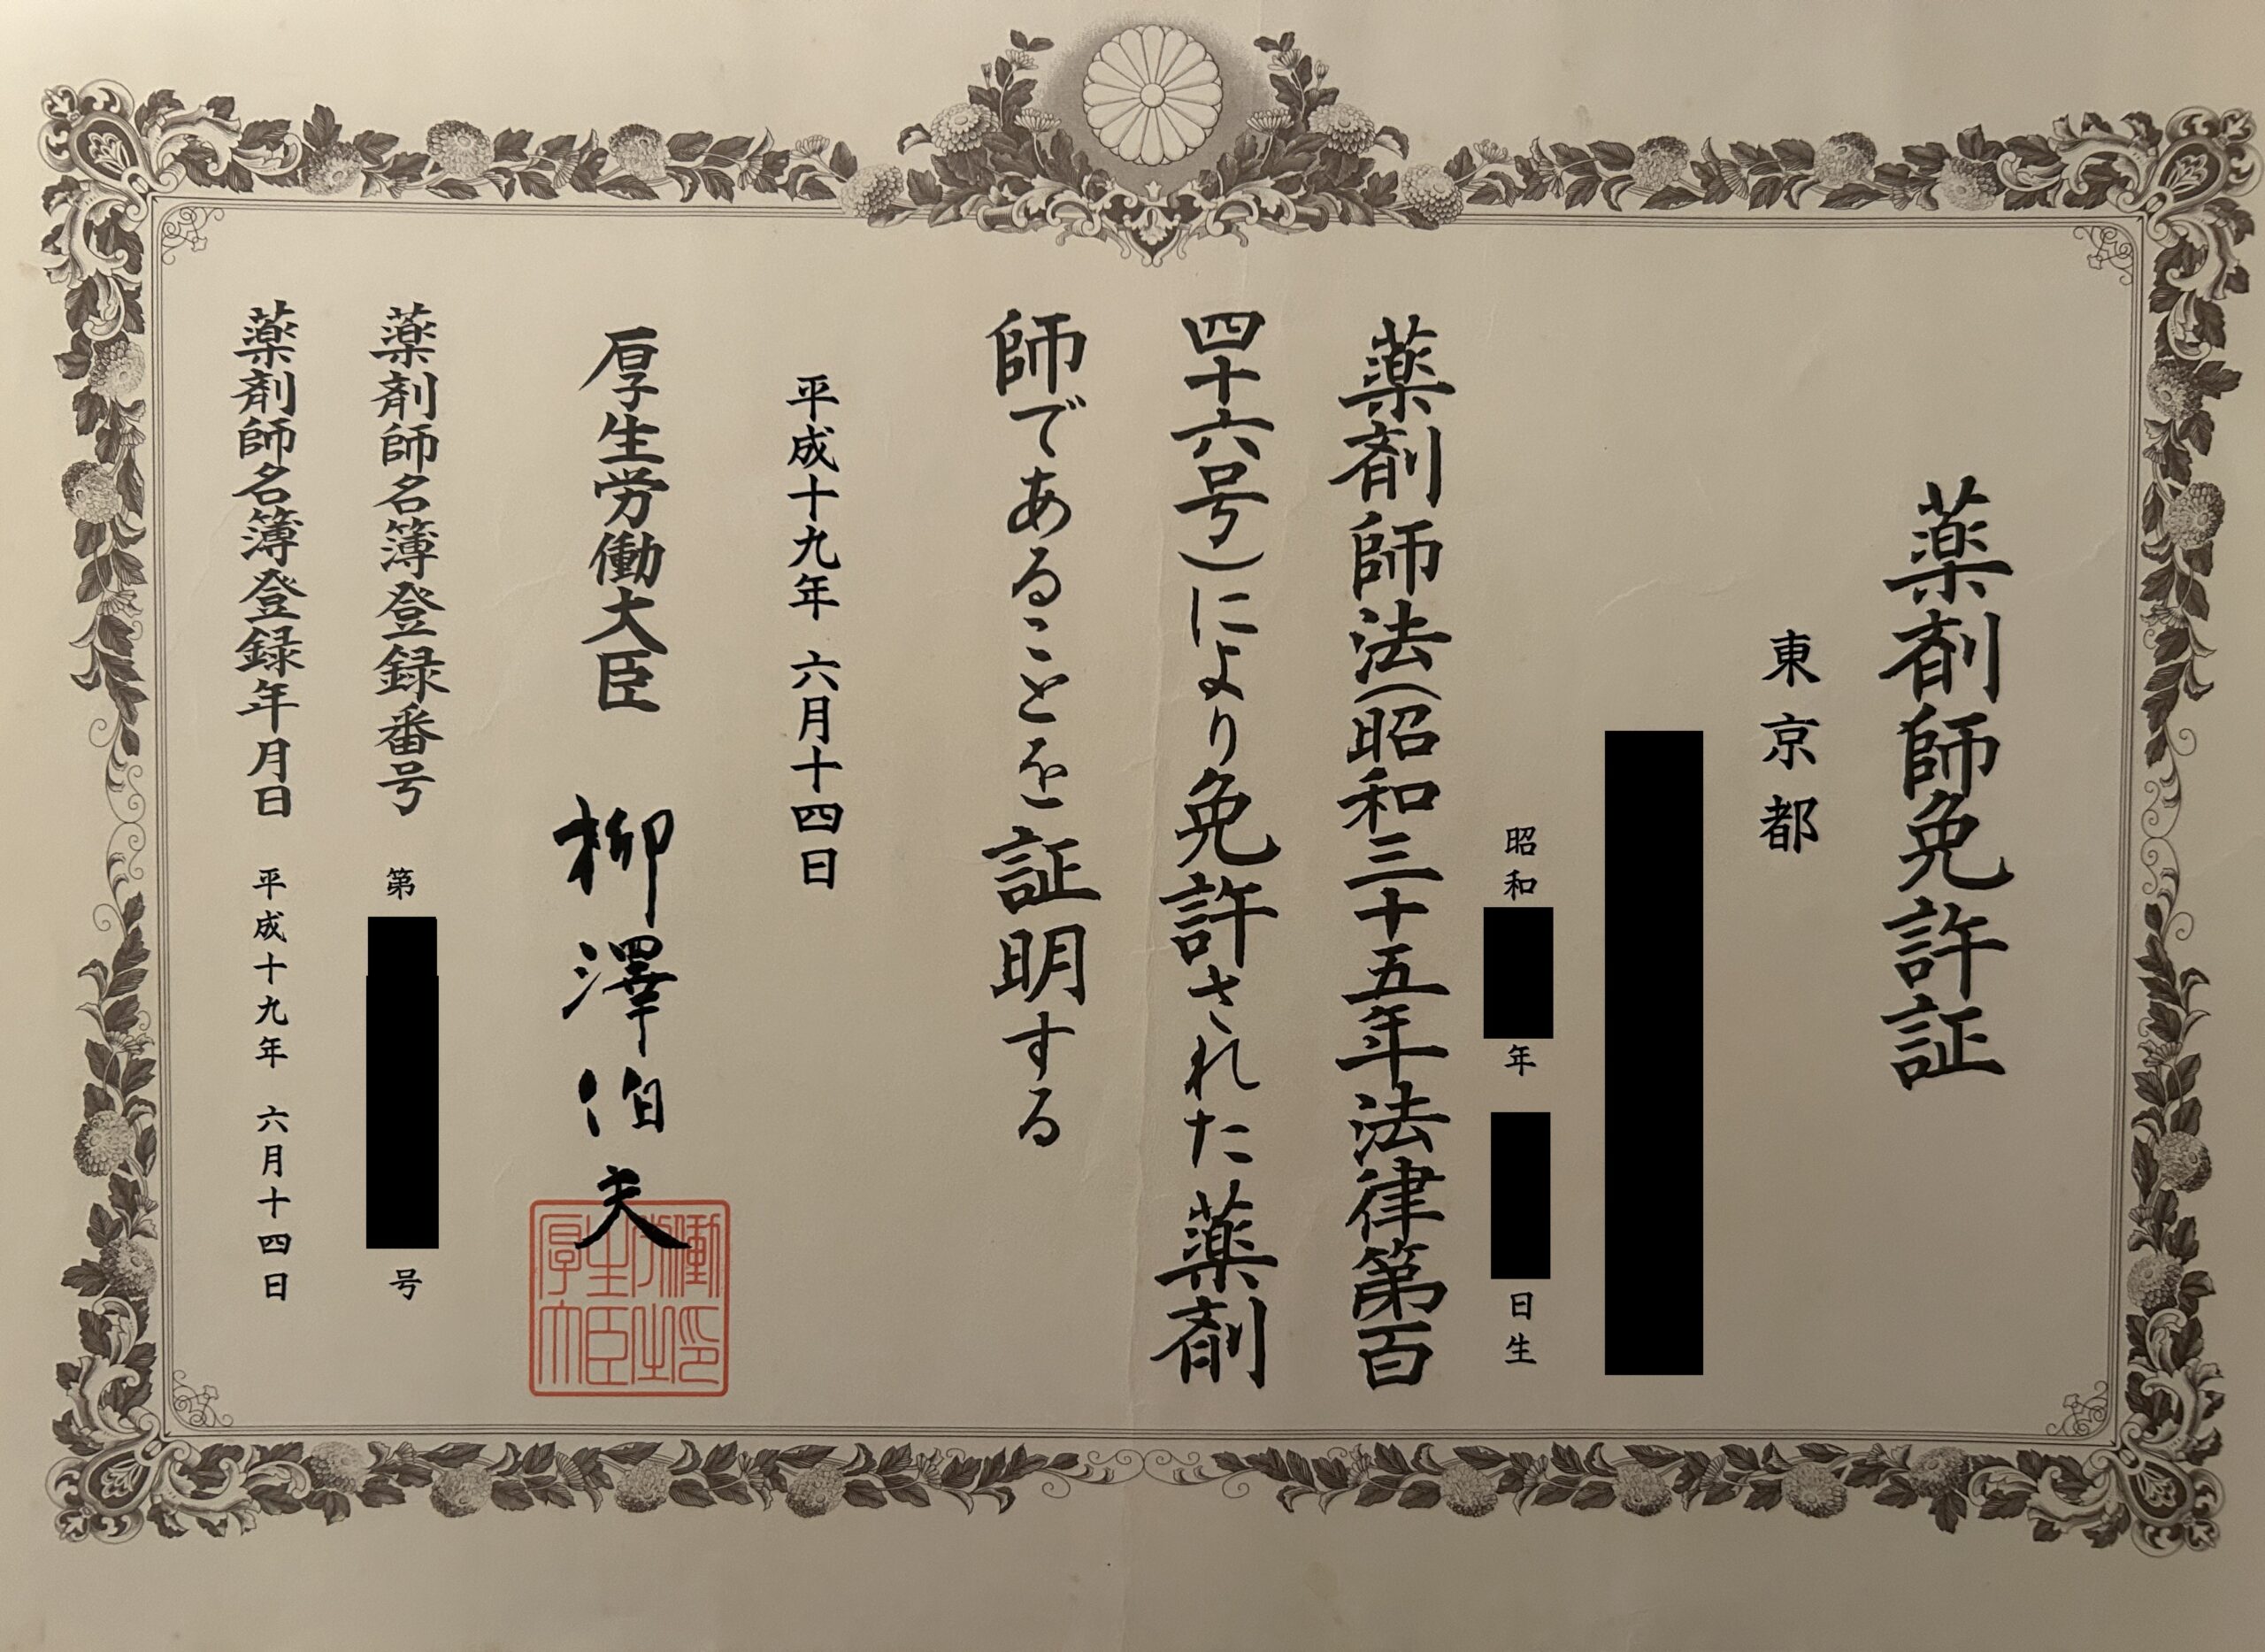 薬剤師免許証
東京都
昭和
年
日生
薬剤師法(昭和三十五年法律第百
四十六号)により免許された薬剤
師であることを証明する
平成十九年 六月十四日
厚生労働大臣 柳澤伯夫
厚生労働大臣之印
薬剤師名簿登録番号 第
号
薬剤師名簿登録年月日 平成十九年 六月十四日